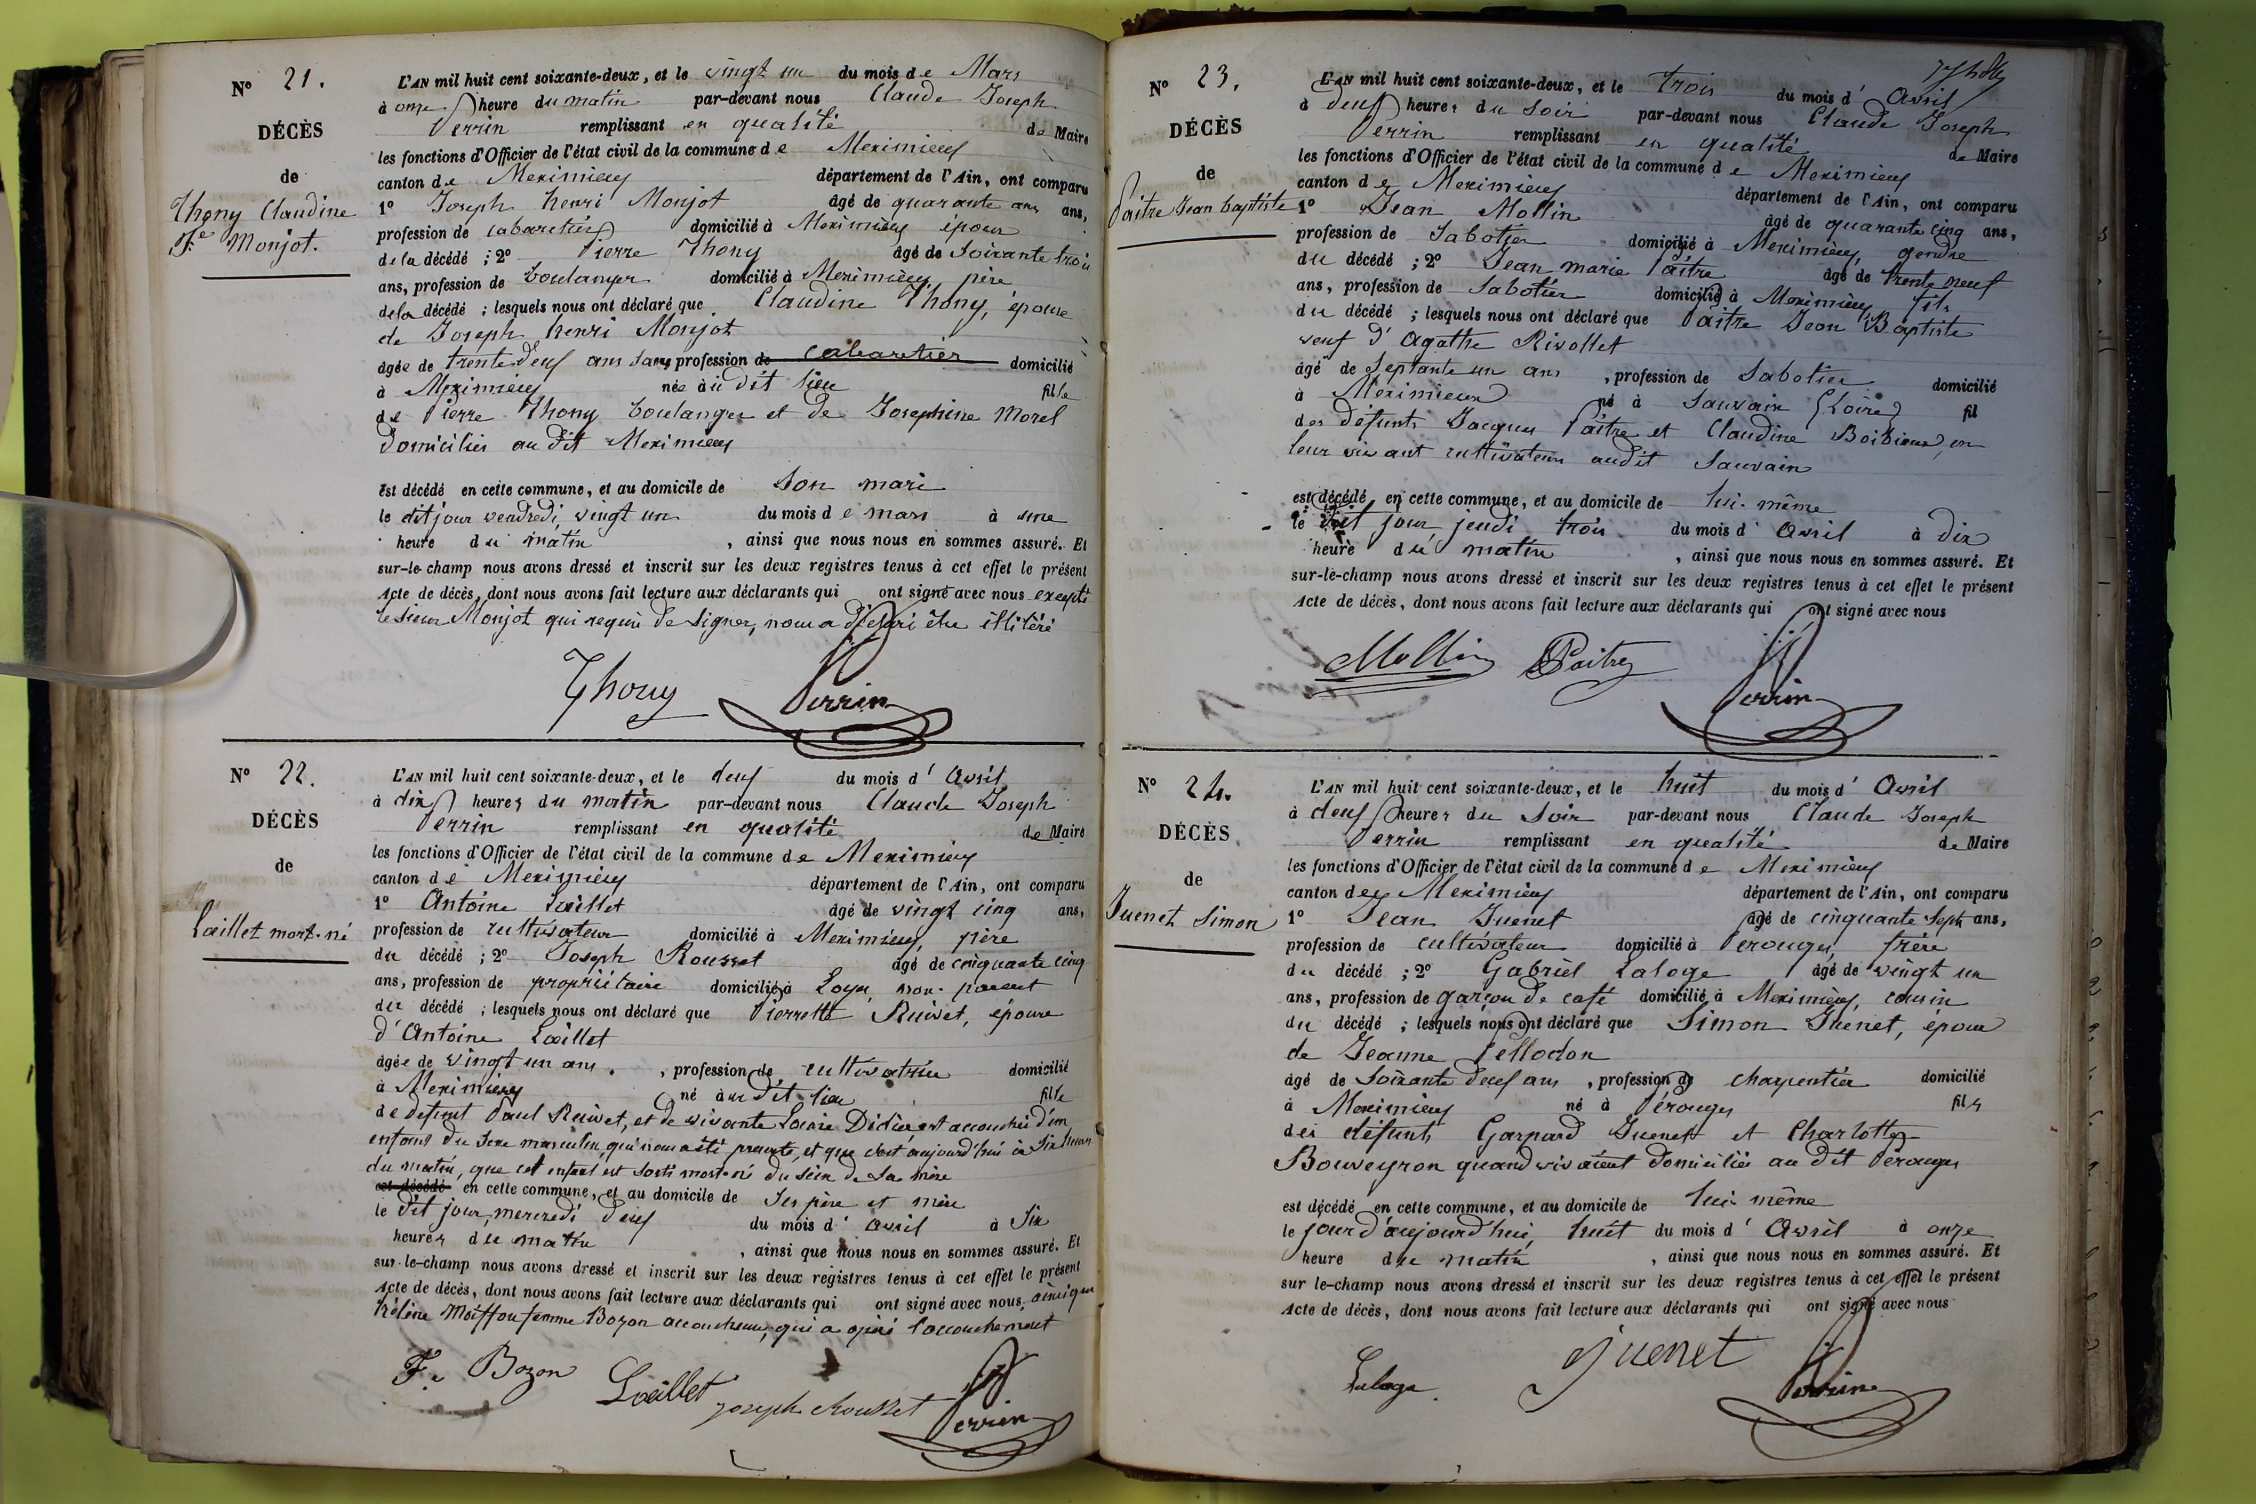 N° 21.
DÉCÈS
de
Thony Claudine
Fe Monjot.
L'AN mil huit cent soixante-deux, et le vingt un du mois de Mars
à onze heure du matin par-devant nous Claude Joseph
Perrin remplissant en qualité de Maire
les fonctions d'Officier de l'état civil de la commune de Meximieux
canton de Meximieux département de l'Ain, ont comparu
1° Joseph henri Monjot âgé de quarante ans ans,
profession de cabaretier domicilié à Meximieux époux
de la décédé ; 2° Pierre Thony âgé de Soixante trois
ans, profession de boulanger domicilié à Meximieux, père
dela décédé ; lesquels nous ont déclaré que Claudine Thony, épouse
de Joseph henri Monjot
âgée de trente deux ans sans profession de cabaretier domicilié
à Meximieux née àu dit lieu fille
de Pierre Thony boulanger et de Josephine Morel
domiciliés au dit Meximieux
est décédé en cette commune, et au domicile de Son mari
le dit jour vendredi vingt un du mois de mars à une
heure du matin , ainsi que nous nous en sommes assuré. Et
sur-le-champ nous avons dressé et inscrit sur les deux registres tenus à cet effet le présent
Acte de décès, dont nous avons fait lecture aux déclarants qui ont signé avec nous excepté
le sieur Monjot qui requis de signer, nous a déclaré être illitéré
Thony Perrin
N° 22.
DÉCÈS
de
Lœillet mort-né
L'AN mil huit cent soixante-deux, et le deux du mois d' Avril
à dix heures du matin par-devant nous Claude Joseph
Perrin remplissant en qualité de Maire
les fonctions d'Officier de l'état civil de la commune de Meximieux
canton de Meximieux département de l'Ain, ont comparu
1° Antoine Lœillet âgé de vingt cinq ans,
profession de cultivateur domicilié à Meximieux, père
du décédé ; 2° Joseph Rousset âgé de cinquante cinq
ans, profession de propriétaire domicilié à Loyes, non-parent
du décédé ; lesquels nous ont déclaré que Pierrette Ruivet, épouse
d'Antoine Lœillet
âgée de vingt un ans. , profession de cultivatrice domicilié
à Meximieux né àu dit lieu fille
de défunt Paul Ruivet, et de vivante Didier est accouchée d'un
enfant du sexe masculin, qui nous a été presenté, et que c'est aujourd'hui à Six heures
du matin, que cet enfant est sorti mort-né du sein de Sa mère
est décédé en cette commune, et au domicile de Ses père et mère
le dit jour, mercredi deux du mois d' Avril à Six
heures du matin , ainsi que nous nous en sommes assuré. Et
sur-le-champ nous avons dressé et inscrit sur les deux registres tenus à cet effet le présent
Acte de décès, dont nous avons fait lecture aux déclarants qui ont signé avec nous, ainsi que
hélène Moiffon femme Bozon accoucheuse, qui a opéré l'accouchement
Fe Bozon Lœillet joseph Rousset Perrin
N° 23.
DÉCÈS
de
Paitre Jean baptiste
L'AN mil huit cent soixante-deux, et le trois du mois d' Avril
à deux heures du Soir par-devant nous Claude Joseph
Perrin remplissant en qualité de Maire
les fonctions d'Officier de l'état civil de la commune de Meximieux
canton de Meximieux département de l'Ain, ont comparu
1° Jean Mollin âgé de quarante cinq ans,
profession de Sabotier domicilié à Meximieux, gendre
du décédé ; 2° Jean marie Paitre âgé de trente neuf
ans, profession de Sabotier domicilié à Meximieux, fils
du décédé ; lesquels nous ont déclaré que Paitre Jean Baptiste
veuf d' Agathe Rivollet
âgé de Septante un ans , profession de Sabotier domicilié
à Meximieux né à Sauvain (Loire) fil
des défunts Jacques Paitre et Claudine en
leur vivant cultivateurs audit Sauvain
est décédé en cette commune, et au domicile de lui-même
le dit jour jeudi trois du mois d' Avril à dix
heure du matin , ainsi que nous nous en sommes assuré. Et
sur-le-champ nous avons dressé et inscrit sur les deux registres tenus à cet effet le présent
Acte de décès, dont nous avons fait lecture aux déclarants qui ont signé avec nous
Mollin Paitre Perrin
N° 24.
DÉCÈS
de
Juenet Simon
L'AN mil huit cent soixante-deux, et le huit du mois d' Avril
à deux heures du Soir par-devant nous Claude Joseph
Perrin remplissant en qualité de Maire
les fonctions d'Officier de l'état civil de la commune de Meximieux
canton de Meximieux département de l'Ain, ont comparu
1° Jean Juenet âgé de cinquante Sept ans,
profession de cultivateur domicilié à Perouges, frère
du décédé ; 2° Gabriel Laloge âgé de vingt un
ans, profession de garçon de café domicilié à Meximieux, cousin
du décédé ; lesquels nous ont déclaré que Simon Juenet, époux
de Jeanne Pellodon
âgé de Soixante deux ans , profession de charpentier domicilié
à Meximieux né à Pérouges fils
des défunts Gaspard Juenet et Charlotte
Bouveyron quand vivaient domiciliés au dit Pérouges
est décédé en cette commune, et au domicile de lui-même
le jour d'aujourd'hui, huit du mois d' Avril à onze
heure du matin , ainsi que nous nous en sommes assuré. Et
sur le-champ nous avons dressé et inscrit sur les deux registres tenus à cet effet le présent
Acte de décès, dont nous avons fait lecture aux déclarants qui ont signé avec nous
Laloge Juenet Perrin